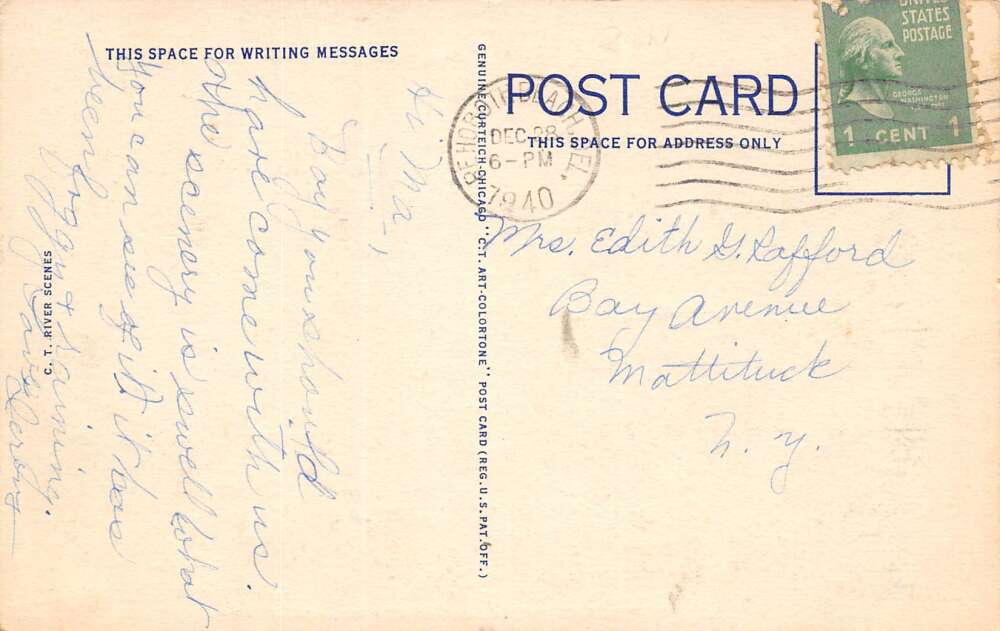 THIS SPACE FOR WRITING MESSAGES
Hi Ma,
Boy you should
have come with us.
The scenery is swell what
you can see of it it has
been foggy & raining.
Love
C. T. RIVER SCENES
GENUINE CURTEICH-CHICAGO "C.T. ART-COLORTONE" POST CARD (REG. U.S. PAT. OFF.)
POST CARD
THIS SPACE FOR ADDRESS ONLY
REHOBOTH BEACH, DEL.
DEC 28
6-PM
1940
UNITED
STATES
POSTAGE
GEORGE
WASHINGTON
1 CENT 1
Mrs. Edith G. Safford
Bay Avenue
Mattituck
N. Y.